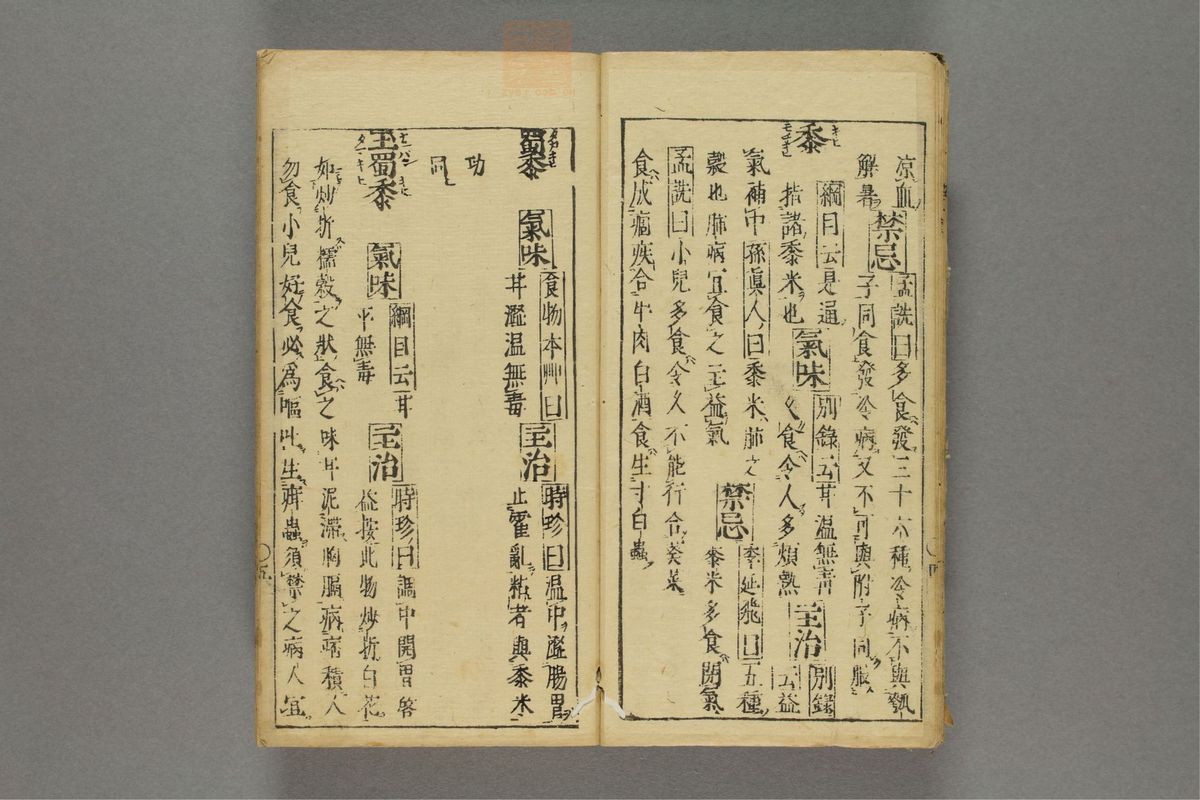 涼血
解暑
禁忌
孟詵曰多食發三十六種冷病不與瓠
子同食發冷病又不可與附子同服
黍
綱目云是通
指諸黍米也
氣味
別錄云甘溫無毒
久食令人多煩熱
主治
別錄
云益
氣補中孫眞人曰黍米肺之
穀也肺病宜食之主益氣
禁忌
李延飛曰五種
黍米多食閉氣
孟詵曰小兒多食令久不能行合葵菜
食成痼疾合牛肉白酒食生寸白蟲
四
蜀黍
氣味
食物本艸曰
甘澀温無毒
主治
時珍曰温中澀腸胃
止霍亂粘者與黍米
功
同
玉蜀黍
氣味
綱目云甘
平無毒
主治
時珍曰調中開胃畧
益按此物炒拆白花
如炒拆糯穀之狀食之味甘泥滯胸膈病痞積人
勿食小兒好食必爲嘔吐生疳蟲須禁之病人宜
五